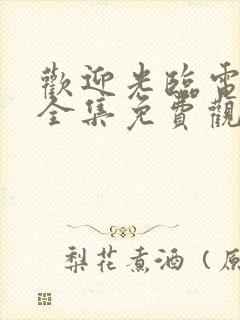 歡迎光臨電
全集免費觀
梨花煮酒（原